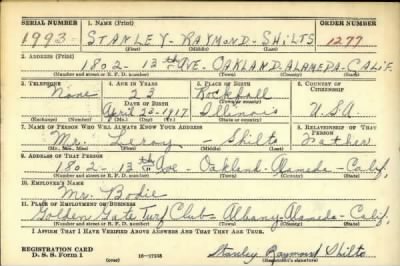 SERIAL NUMBER 1. NAME (Print) ORDER NUMBER
1993 STANLEY - RAYMOND - SHILTS 1277
(First) (Middle) (Last)
2. ADDRESS (Print)
1802 - 13th AVE - OAKLAND, ALAMEDA - CALIF.
(Number and street or R. F. D. number) (Town) (County) (State)
3. TELEPHONE 4. AGE IN YEARS 5. PLACE OF BIRTH 6. COUNTRY OF CITIZENSHIP
None 23 Rockfall
DATE OF BIRTH (Town or county)
April 23-1917 Illinois U.S.A
(Exchange) (Number) (Mo.) (Day) (Yr.) (State or country)
7. NAME OF PERSON WHO WILL ALWAYS KNOW YOUR ADDRESS 8. RELATIONSHIP OF THAT PERSON
Mr. Leroy - Shilts Father
(Mr., Mrs., Miss) (First) (Middle) (Last)
9. ADDRESS OF THAT PERSON
1802 - 13th Ave - Oakland - Alameda - Calif.
(Number and street or R. F. D. number) (Town) (County) (State)
10. EMPLOYER'S NAME
Mr. Bodie
11. PLACE OF EMPLOYMENT OR BUSINESS
Golden Gate Turf Club - Albany - Alameda - Calif.
(Number and street or R. F. D. number) (Town) (County) (State)
I AFFIRM THAT I HAVE VERIFIED ABOVE ANSWERS AND THAT THEY ARE TRUE.
REGISTRATION CARD
D. S. S. Form 1 16-17105 Stanley Raymond Shilts
(Registrant's signature)